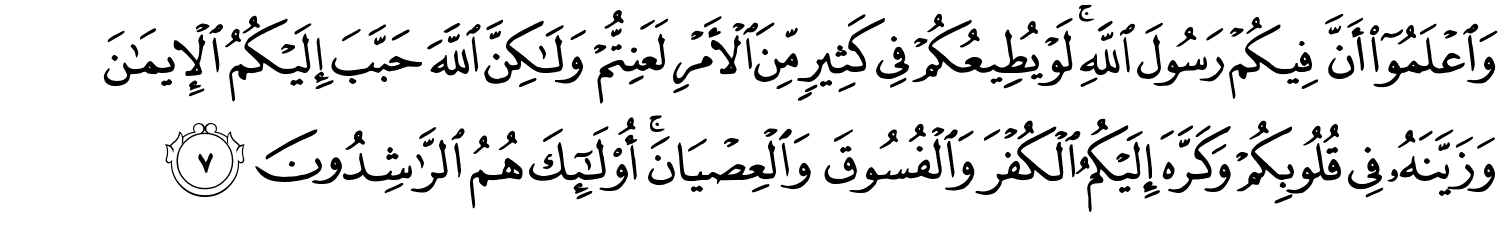 وَٱعۡلَمُوٓاْ أَنَّ فِيكُمۡ رَسُولَ ٱللَّهِۚ لَوۡ يُطِيعُكُمۡ فِي كَثِيرٖ مِّنَ ٱلۡأَمۡرِ لَعَنِتُّمۡ وَلَٰكِنَّ ٱللَّهَ حَبَّبَ إِلَيۡكُمُ ٱلۡإِيمَٰنَ
وَزَيَّنَهُۥ فِي قُلُوبِكُمۡ وَكَرَّهَ إِلَيۡكُمُ ٱلۡكُفۡرَ وَٱلۡفُسُوقَ وَٱلۡعِصۡيَانَۚ أُوْلَٰٓئِكَ هُمُ ٱلرَّٰشِدُونَ ٧